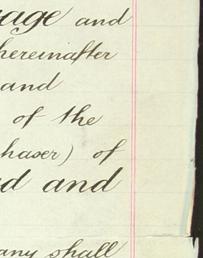 age and
hereinafter
and
of the
haser) of
d and
any shall